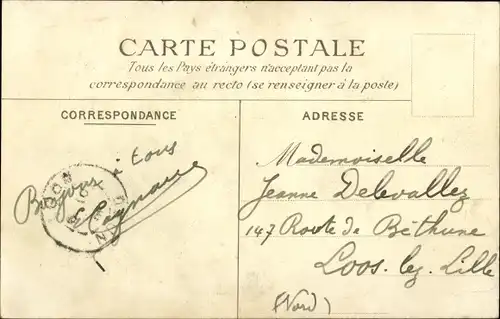 CARTE POSTALE
Tous les Pays étrangers n'acceptant pas la
correspondance au recto (se renseigner à la poste)
CORRESPONDANCE
à tous
ADRESSE
Mademoiselle
Jeanne Delevallez
147 Route de Béthune
Loos-lez-Lille
(Nord)